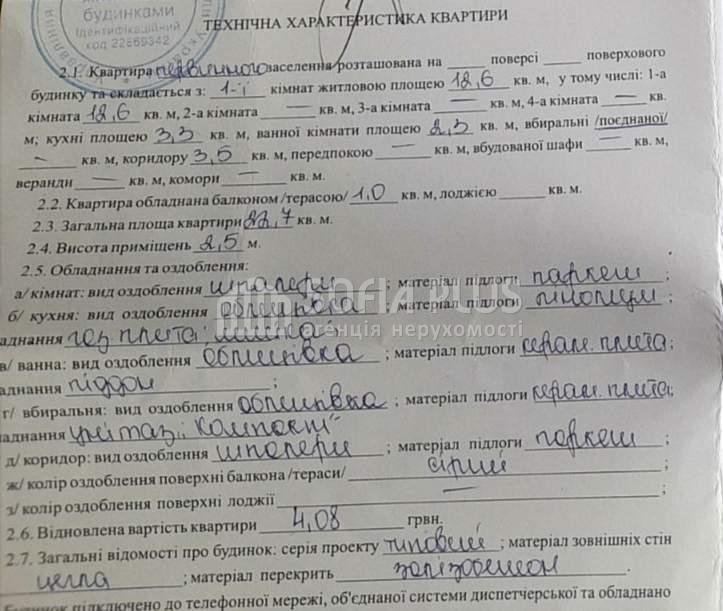 будинками
Ідентифікаційний
код 22869342
ТЕХНІЧНА ХАРАКТЕРИСТИКА КВАРТИРИ
2.1. Квартира первинного заселення розташована на ____ поверсі ____ поверхового
будинку та складається з: 1-ї кімнат житловою площею 12,6 кв. м, у тому числі: 1-а
кімната 12,6 кв. м, 2-а кімната — кв. м, 3-а кімната — кв. м, 4-а кімната — кв.
м; кухні площею 3,3 кв. м, ванної кімнати площею 2,3 кв. м, вбиральні /поєднаної/
— кв. м, коридору 3,5 кв. м, передпокою — кв. м, вбудованої шафи — кв. м,
веранди — кв. м, комори — кв. м.
2.2. Квартира обладнана балконом /терасою/ 1,0 кв. м, лоджією ____ кв. м.
2.3. Загальна площа квартири 22,7 кв. м.
2.4. Висота приміщень 2,5 м.
2.5. Обладнання та оздоблення:
а/ кімнат: вид оздоблення шпалери ; матеріал підлоги паркет ;
б/ кухня: вид оздоблення облицівка матеріал підлоги лінолеум ;
SOFIA PLUS
агенція нерухомості
аднання газ. плита;
в/ ванна: вид оздоблення облицівка ; матеріал підлоги керам. плита;
аднання піддон ;
г/ вбиральня: вид оздоблення облицівка ; матеріал підлоги керам. плита;
аднання унітаз; компакт
д/ коридор: вид оздоблення шпалери ; матеріал підлоги паркет ;
ж/ колір оздоблення поверхні балкона /тераси/ сірий ;
з/ колір оздоблення поверхні лоджії — ;
2.6. Відновлена вартість квартири 4,08 грвн.
2.7. Загальні відомості про будинок: серія проекту типовий ; матеріал зовнішніх стін
цегла ; матеріал перекрить залізобетон .
Будинок підключено до телефонної мережі, об'єднаної системи диспетчерської та обладнано